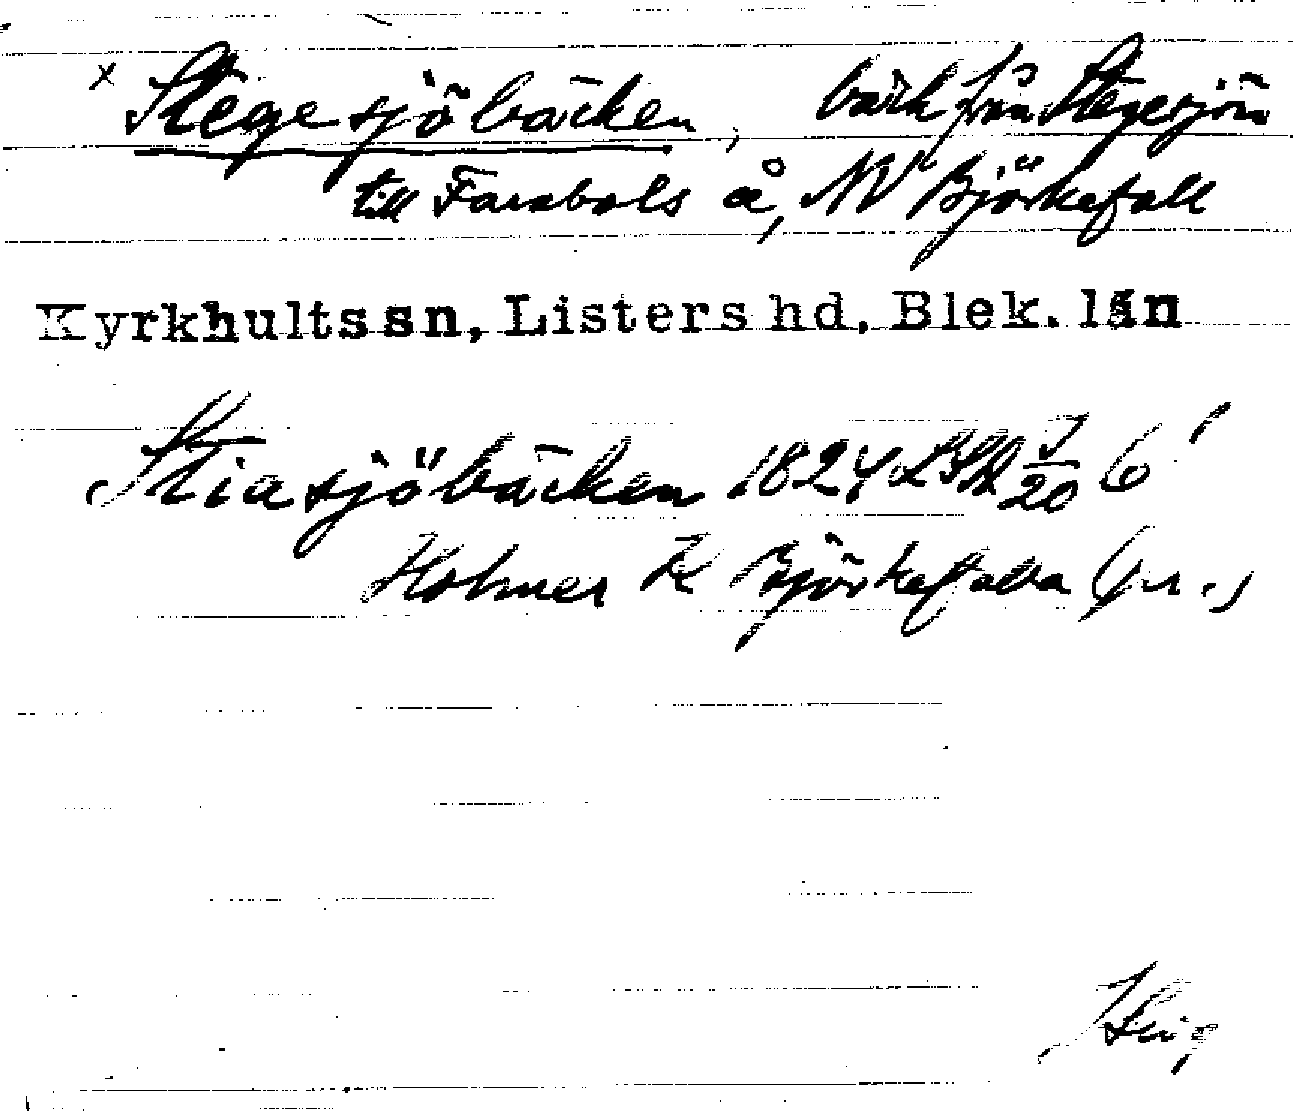 x Stegesjöbäcken, bäck från Stegesjön
till Farabols å, NV Björkefall
Kyrkhults sn, Listers hd, Blek. län
Stiasjöbäcken 1824 LSA 7/20 6'
Holmer K Björkefalla (gm.)